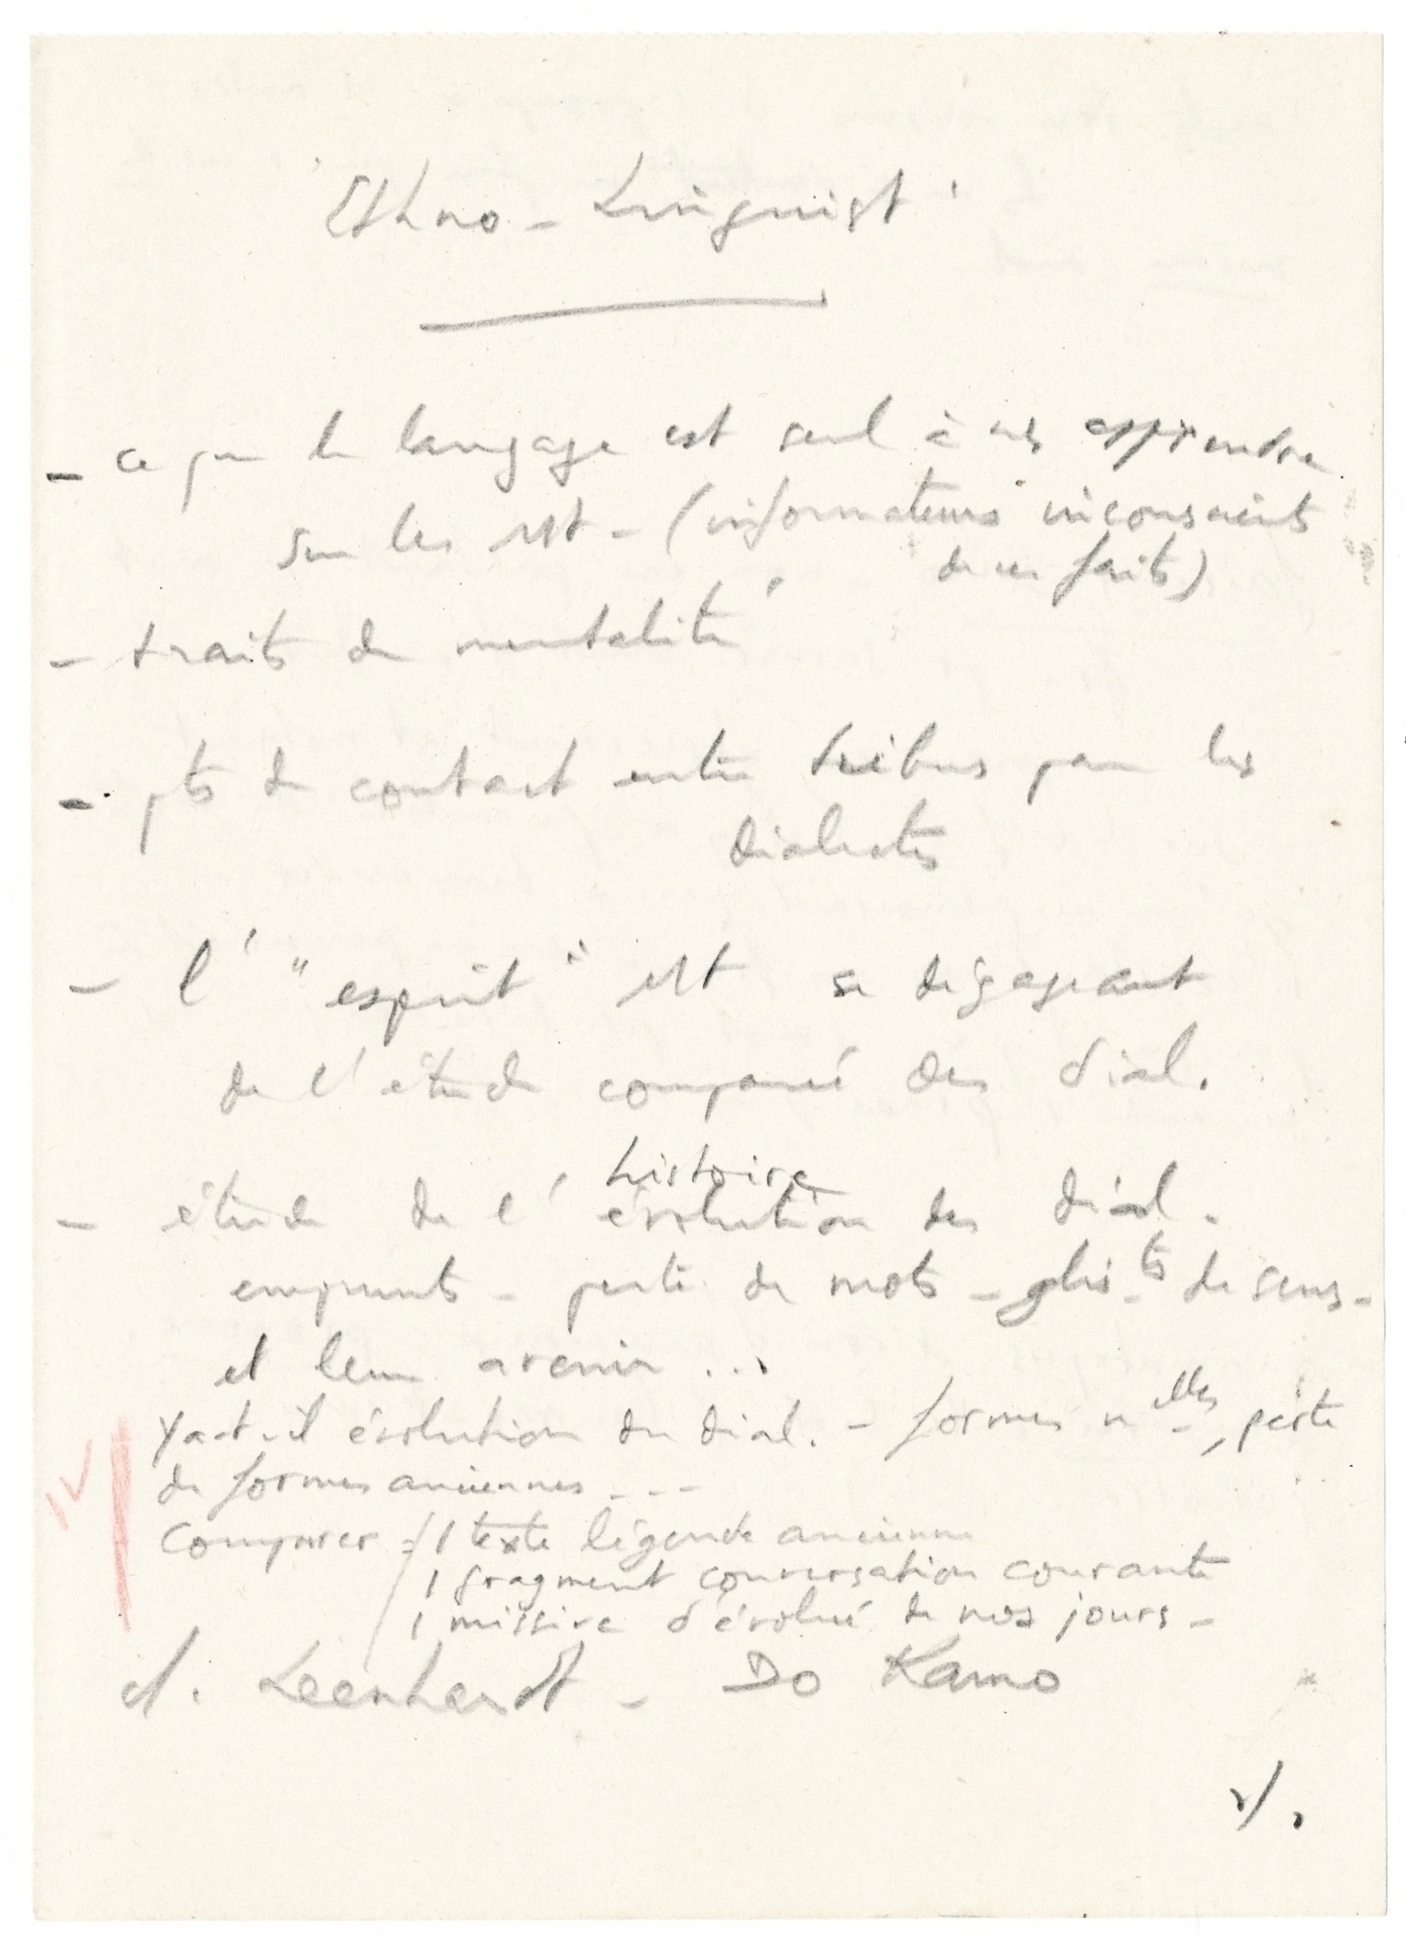 Ethno - Linguist
- ce que le langage est seul à ns apprendre
sur les MT - (informateurs inconscients
de ces faits)
- traits de mentalité
- pts de contact entre tribus par les
dialectes
- l' "esprit" MT se dégageant
de l'étude comparée des dial.
histoire
- étude de l'évolution des dial.
emprunts - perte de mots - gliss.ts de sens -
et leur avenir ...
Y a-t-il évolution du dial. - formes nelles, perte
de formes anciennes ---
Comparer : / 1 texte légende ancienne
1 fragment conversation courante
1 missive d'évolué de nos jours -
cf. Leenhardt - Do Kamo